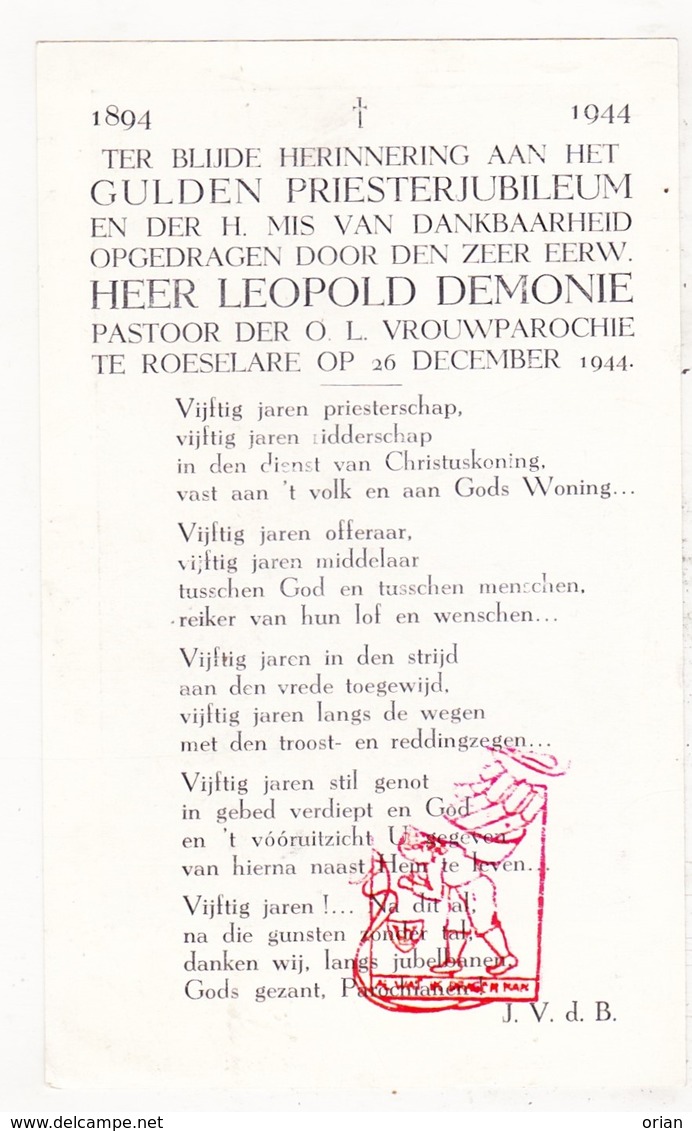 1894 † 1944
TER BLIJDE HERINNERING AAN HET
GULDEN PRIESTERJUBILEUM
EN DER H. MIS VAN DANKBAARHEID
OPGEDRAGEN DOOR DEN ZEER EERW.
HEER LEOPOLD DEMONIE
PASTOOR DER O. L. VROUWPAROCHIE
TE ROESELARE OP 26 DECEMBER 1944.
Vijftig jaren priesterschap,
vijftig jaren ridderschap
in den dienst van Christuskoning,
vast aan 't volk en aan Gods Woning...
Vijftig jaren offeraar,
vijftig jaren middelaar
tusschen God en tusschen menschen,
reiker van hun lof en wenschen...
Vijftig jaren in den strijd
aan den vrede toegewijd,
vijftig jaren langs de wegen
met den troost- en reddingzegen...
Vijftig jaren stil genot
in gebed verdiept en God
en 't vóóruitzicht U gegeven
van hierna naast Hem te leven...
Vijftig jaren !... Na dit al,
na die gunsten zonder tal,
danken wij, langs jubelbanen,
Gods gezant, Parochianen !
J. V. d. B.
delcampe.net
orian